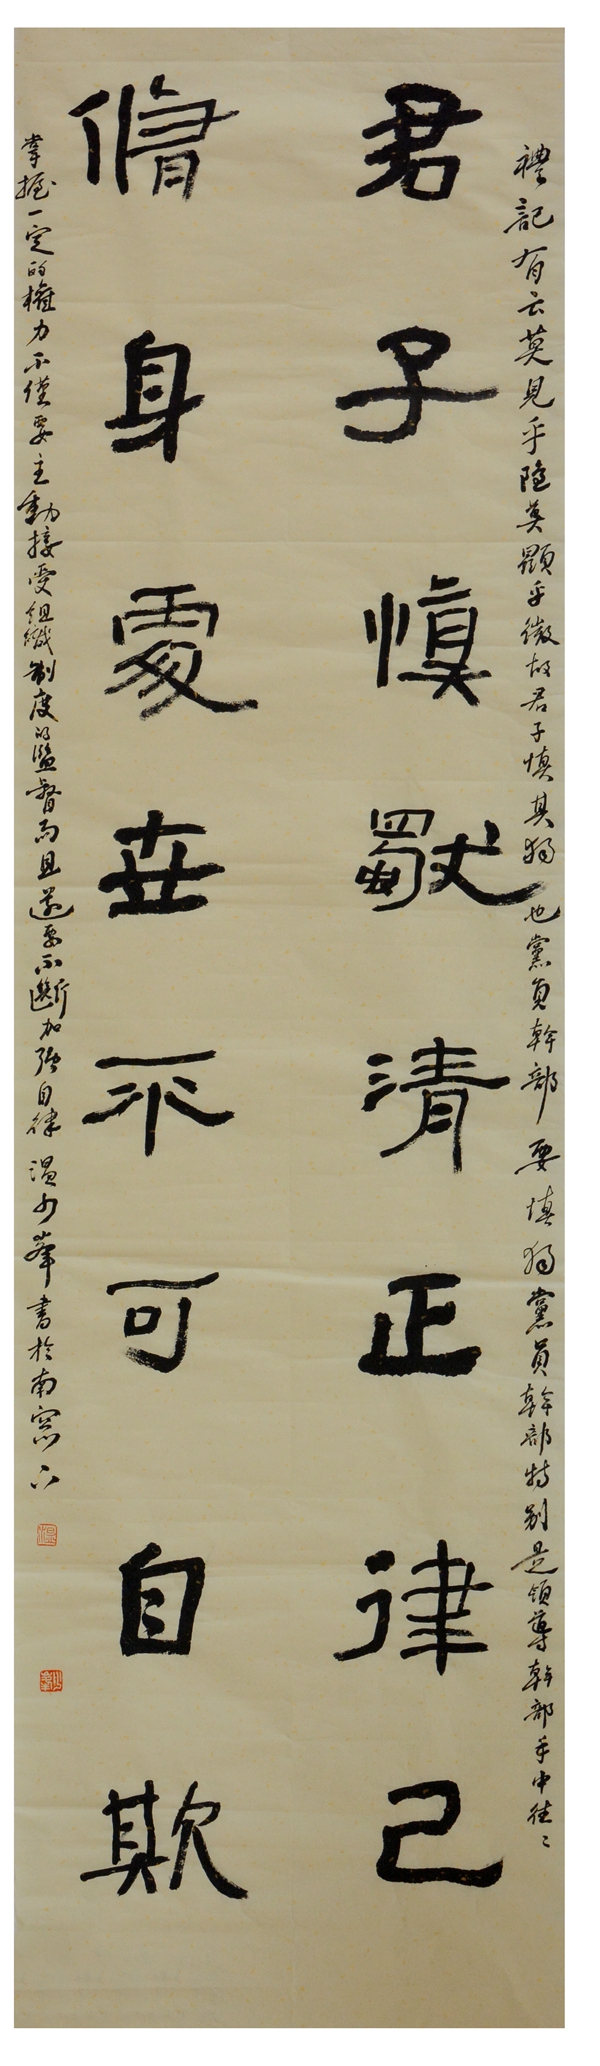 禮記有云莫見乎隱莫顯乎微故君子慎其獨也黨員幹部要慎獨黨員幹部特别是領導幹部手中往〻
君子慎獨清正律己
脩身處世不可自欺
掌握一定的權力不僅要主動接受組織制度的監督而且還要不斷加強自律 溫少峯書於南窓下